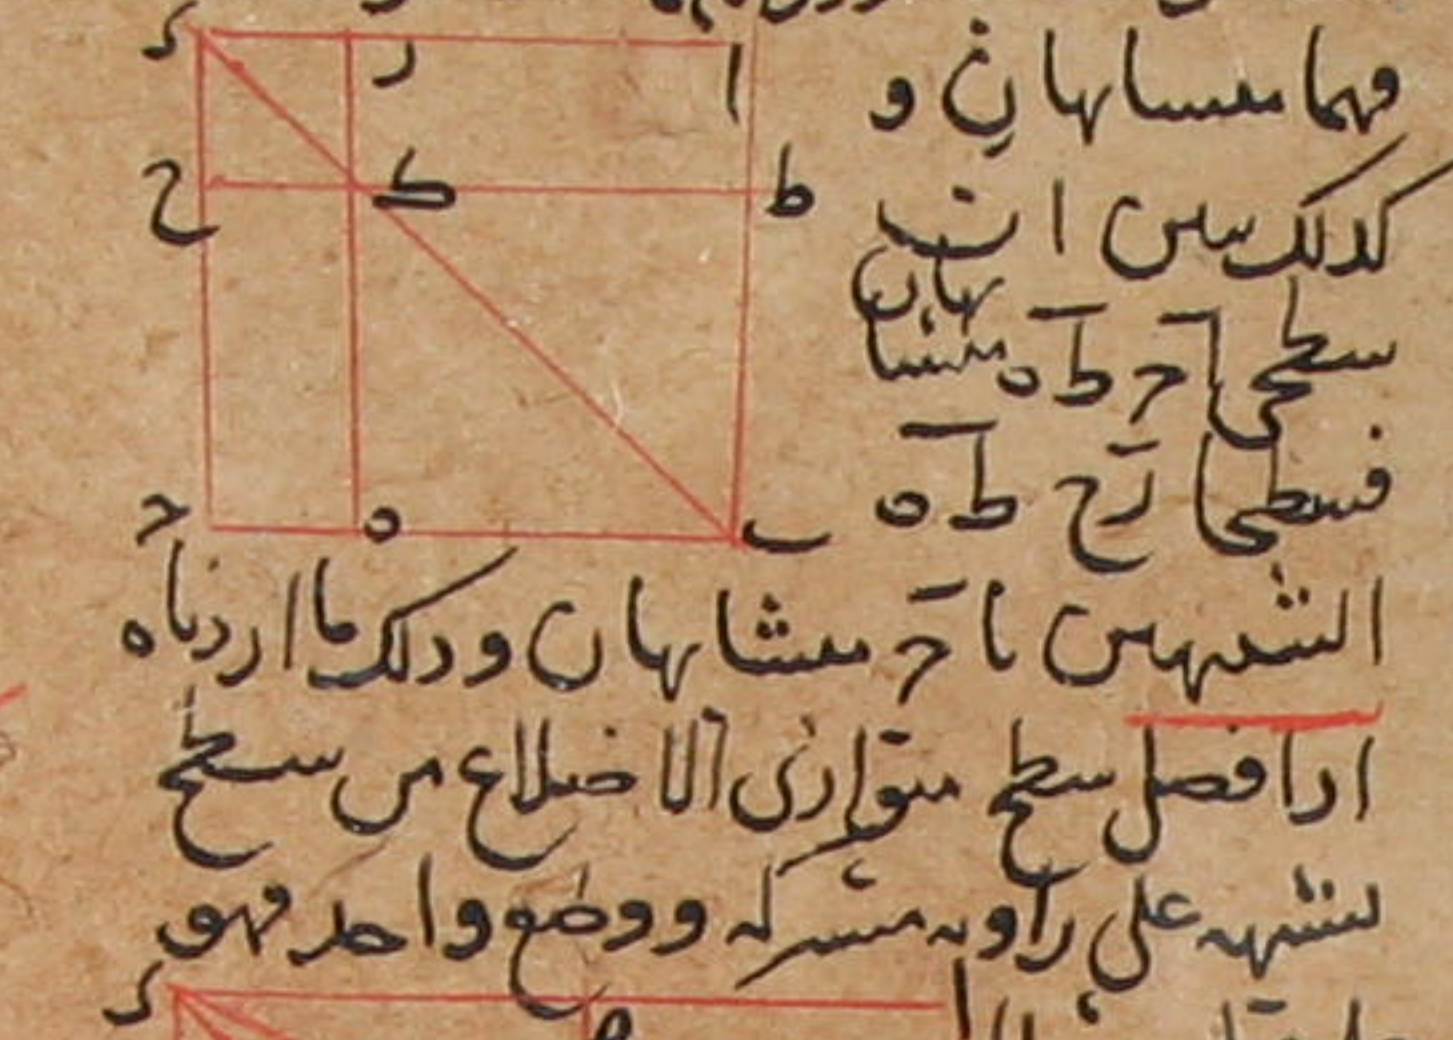 د ر ا
ح ك ط
ح ه ب
فهما متشابهان و
كذلك نبين ان
سطحى ا ح ط ه متشا
بهان
فسطحا ر ح ط ه
الشبيهين با ح متشابهان وذلك ما اردناه
اذا فصل سطح متوازى الاضلاع من سطح
يشبهه على زاوية مشتركة ووضع واحد فهو
د ه ا